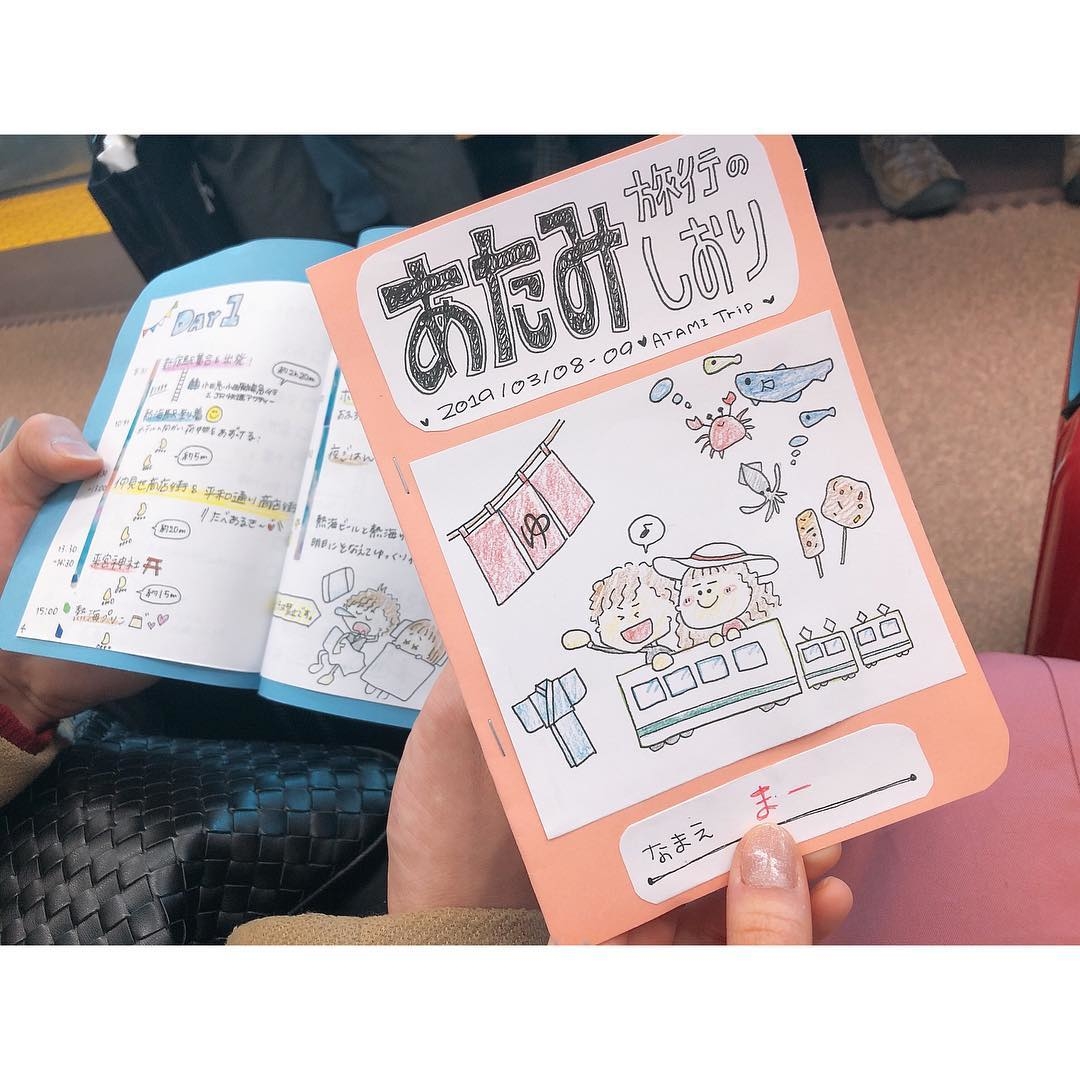 あたみ 旅行の
しおり
2019/03/08-09 ♥ ATAMI Trip ♥
ゆ
♪
なまえ まー
DAY 1
新宿駅集合&出発!
約2h20m
熱海駅到着
約5m
仲見世商店街&平和通り商店街
たべあるき〜
約20m
13:30
-14:30
来宮神社
約15m
15:00
熱海プリン
4
夜ごはん
熱海ビールと熱海